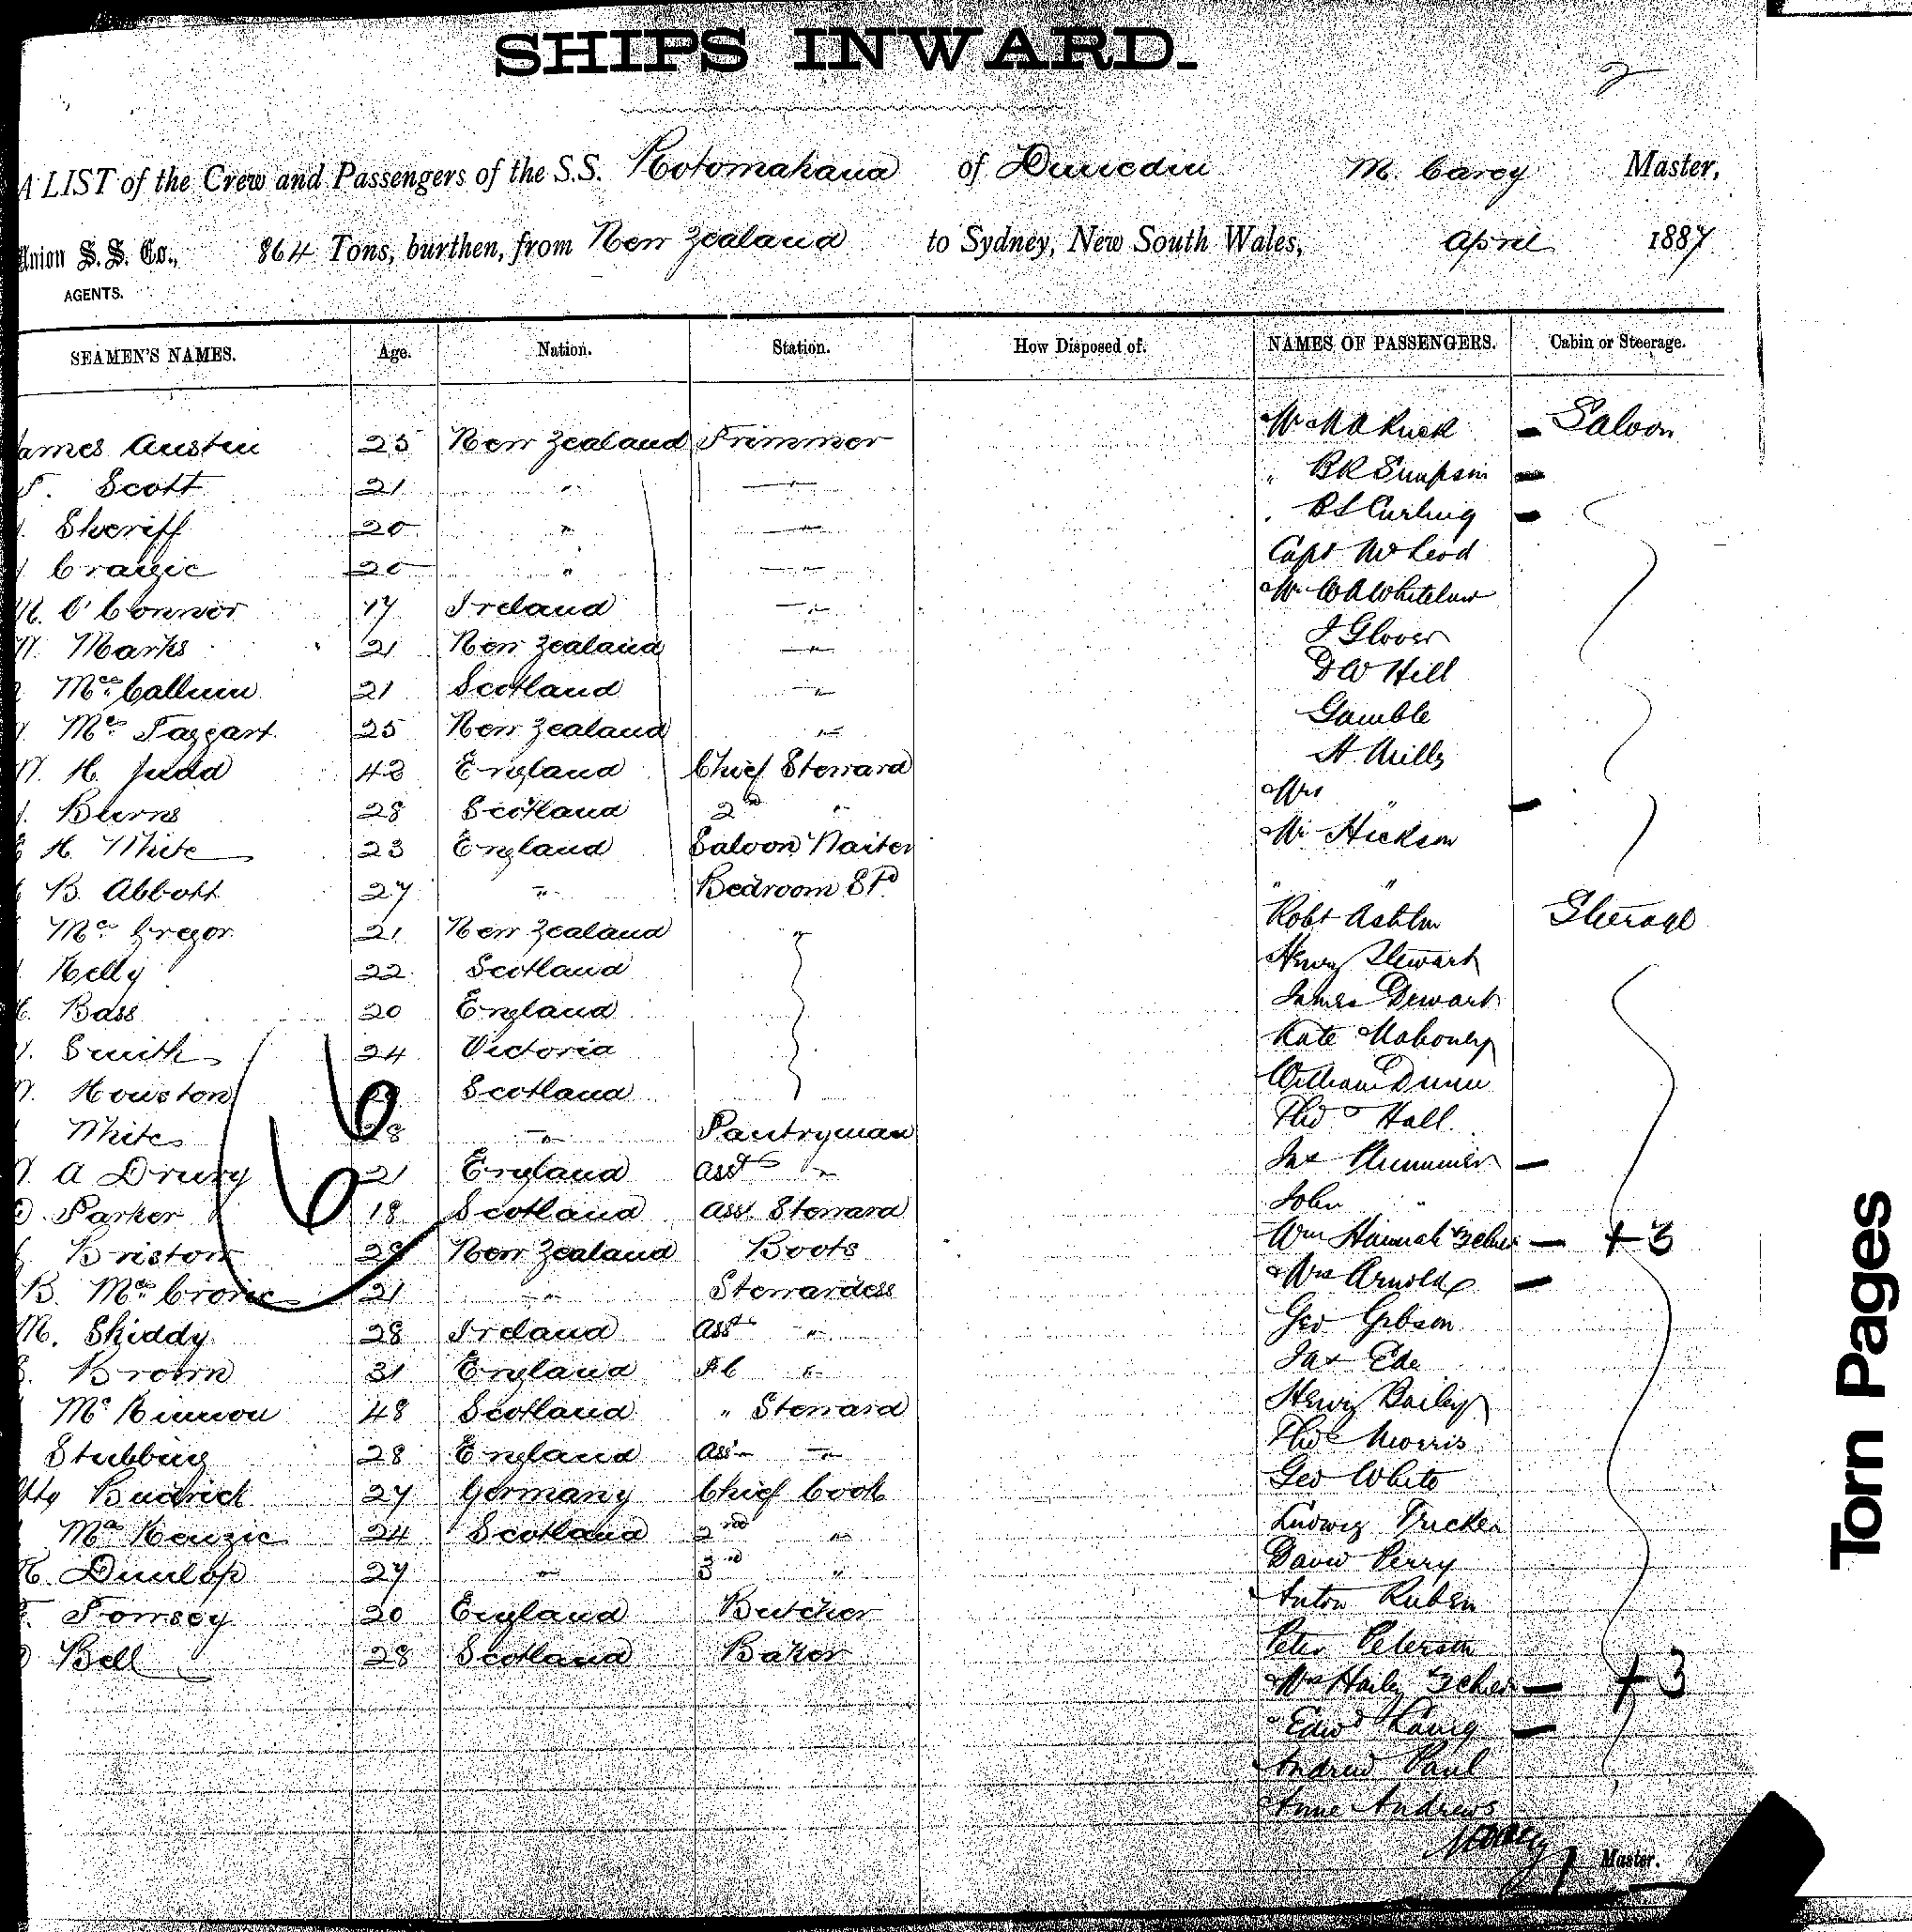 SHIPS INWARD.
2
A LIST of the Crew and Passengers of the S.S. Rotomahana of Dunedin M. Carey Master,
Union S. S. Co., 864 Tons, burthen, from New Zealand to Sydney, New South Wales, April 1887
AGENTS.
SEAMEN'S NAMES. Age. Nation. Station. How Disposed of. NAMES OF PASSENGERS. Cabin or Steerage.
ames Austin 25 New Zealand Trimmer Saloon
Scott 21 " " " BR Simpson
Sheriff 20 " " Curling
20 " " Capt McLeod
O'Connor 17 Ireland " Mr WA Whitelaw
Marks 21 New Zealand " J Glover
McCallum 21 Scotland " DW Hill
McTaggart 25 New Zealand " Gamble
H. Judd 42 England Chief Steward Mills
Burns 28 Scotland 2nd " Mrs "
H. White 23 England Saloon Waiter Mr Hickson
B. Abbott 27 " Bedroom Std " "
McGregor 21 New Zealand " Robt Ashton Steerage
Kelly 22 Scotland Henry Stewart
Bass 20 England James Dewart
Smith 24 Victoria Kate Mahoney
Houston Scotland William Dunn
White 28 " Pantryman Thos Hall
A Drury 21 England Asst " Jas Plummer
Parker 18 Scotland Ass. Steward John "
Bristow New Zealand Boots Wm Hannah +3
B. McCrorie 21 " Stewardess Mrs Arnold
M. Skiddy 28 Ireland Asst " Geo Gibson
Brown 31 England " Jas Ede
McKinnon 48 Scotland " Steward Henry Bailey
Stubbing 28 England Ass " Thos Morris
27 Germany Chief Cook Geo White
McKenzie 24 Scotland 2nd " Ludwig Fricker
Dunlop 27 " 3rd " David Perry
20 England Butcher Anton Ruben
Bell 28 Scotland Baker Peter Peterson
Mrs +3
Edwd
Andrew Paul
Anne Andrews
Master.
Torn Pages